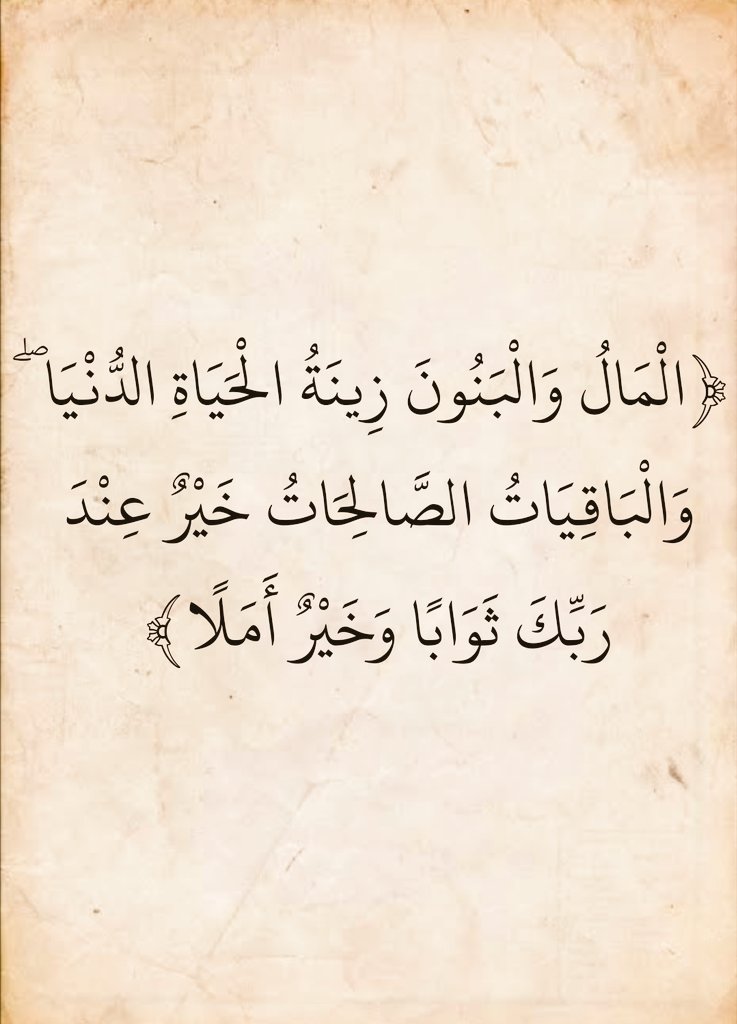 ﴿الْمَالُ وَالْبَنُونَ زِينَةُ الْحَيَاةِ الدُّنْيَا ۖ
وَالْبَاقِيَاتُ الصَّالِحَاتُ خَيْرٌ عِنْدَ
رَبِّكَ ثَوَابًا وَخَيْرٌ أَمَلًا﴾